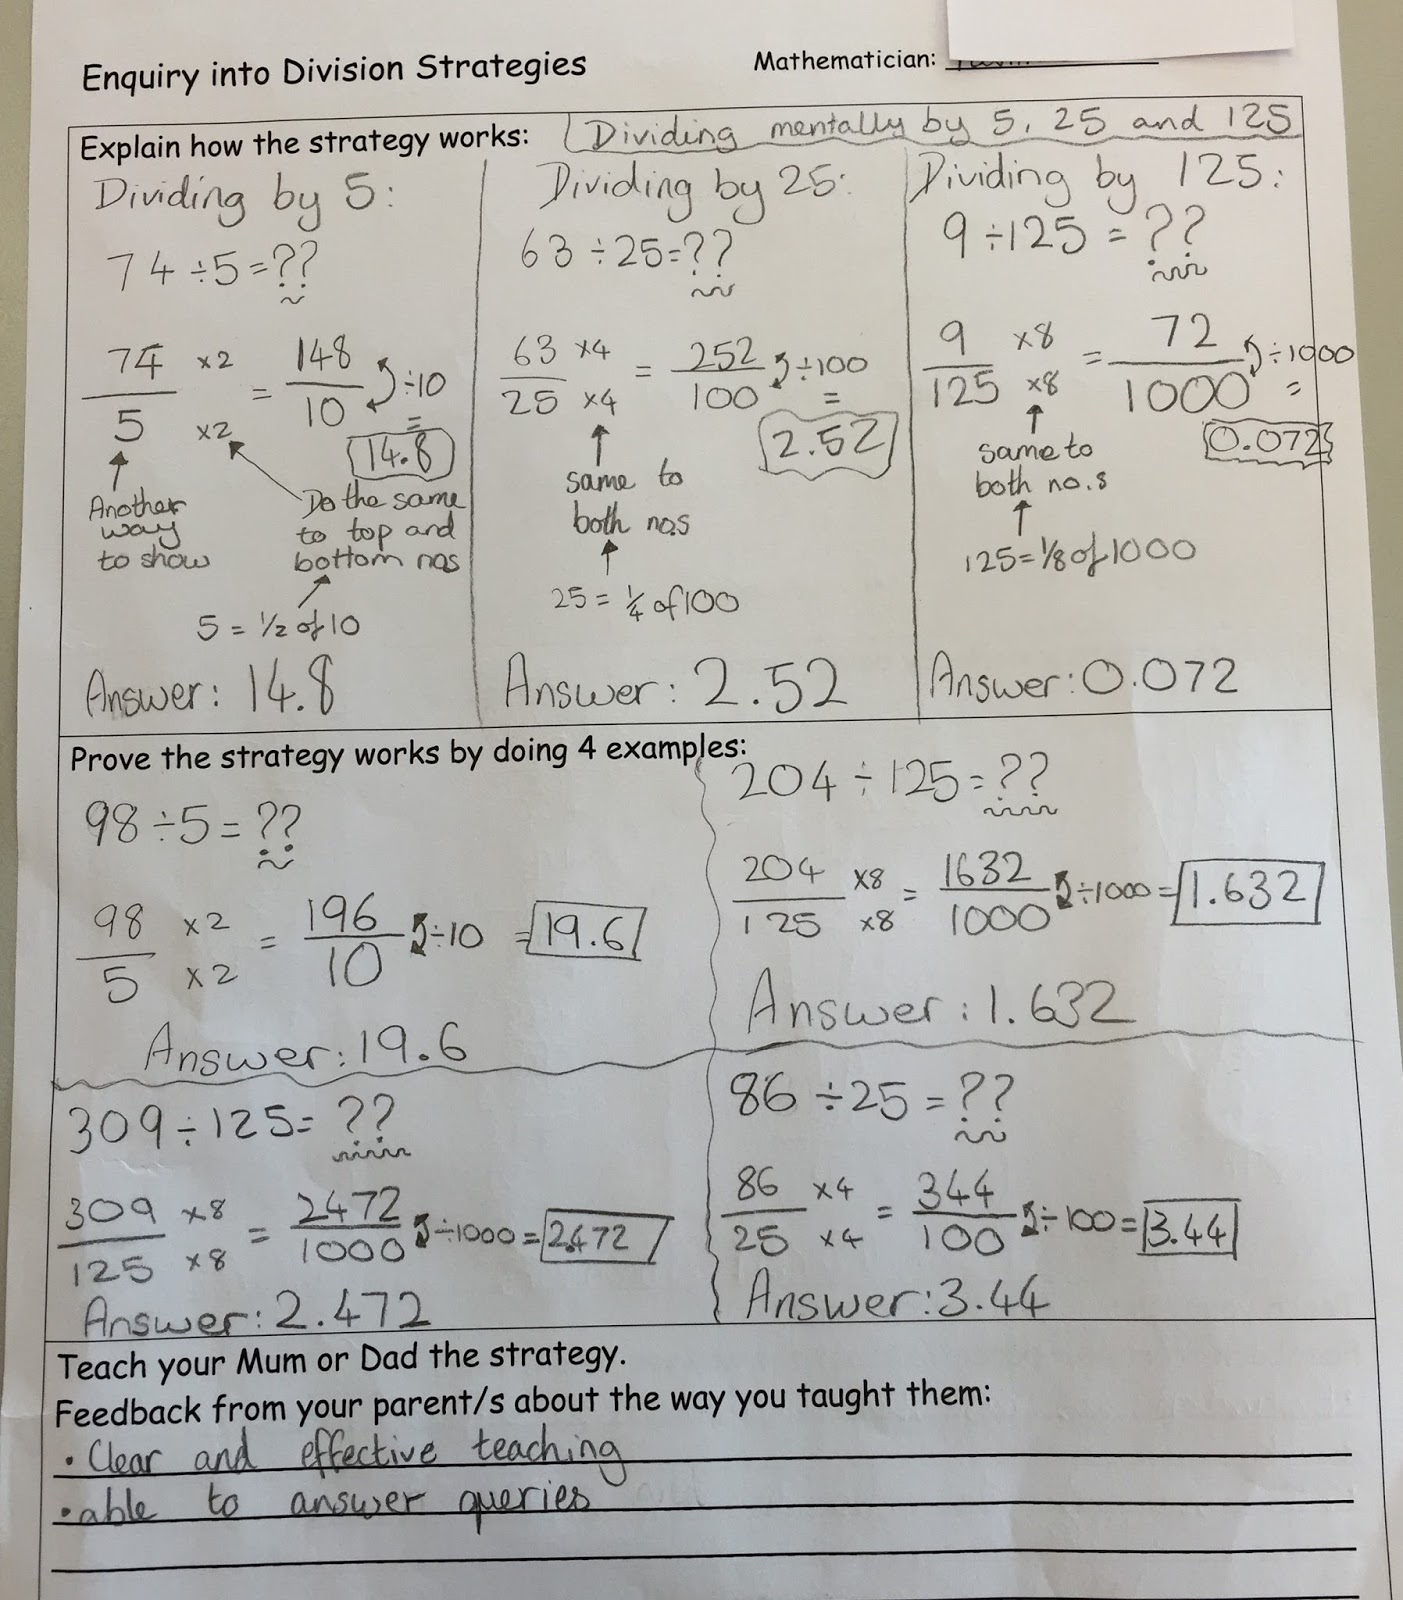 Enquiry into Division Strategies
Mathematician:
Explain how the strategy works:
Dividing mentally by 5, 25 and 125
Dividing by 5:
74 ÷ 5 = ??
74/5 ×2 ×2 = 148/10 ÷10
=
14.8
Another
way
to show
Do the same
to top and
bottom nos
5 = 1/2 of 10
Answer: 14.8
Dividing by 25:
63 ÷ 25 = ??
63/25 ×4 ×4 = 252/100 ÷100
=
2.52
same to
both nos
25 = 1/4 of 100
Answer: 2.52
Dividing by 125:
9 ÷ 125 = ??
9/125 ×8 ×8 = 72/1000 ÷1000
=
0.072
same to
both no.s
125 = 1/8 of 1000
Answer: 0.072
Prove the strategy works by doing 4 examples:
98 ÷ 5 = ??
98/5 ×2 ×2 = 196/10 ÷10 = 19.6
Answer: 19.6
204 ÷ 125 = ??
204/125 ×8 ×8 = 1632/1000 ÷1000 = 1.632
Answer: 1.632
309 ÷ 125 = ??
309/125 ×8 ×8 = 2472/1000 ÷1000 = 2.472
Answer: 2.472
86 ÷ 25 = ??
86/25 ×4 ×4 = 344/100 ÷100 = 3.44
Answer: 3.44
Teach your Mum or Dad the strategy.
Feedback from your parent/s about the way you taught them:
• Clear and effective teaching
• able to answer queries